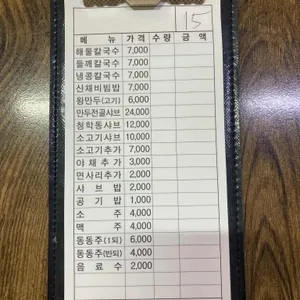 15
메 뉴 가 격 수 량 금 액
해물칼국수 7,000
들깨칼국수 7,000
냉콩칼국수 7,000
산채비빔밥 7,000
왕만두(고기) 6,000
만두전골샤브 24,000
청학동샤브 12,000
소고기샤브 10,000
소고기추가 7,000
야 채 추 가 3,000
면사리추가 2,000
샤 브 밥 2,000
공 기 밥 1,000
소 주 4,000
맥 주 4,000
동동주(1되) 6,000
동동주(반되) 4,000
음 료 수 2,000